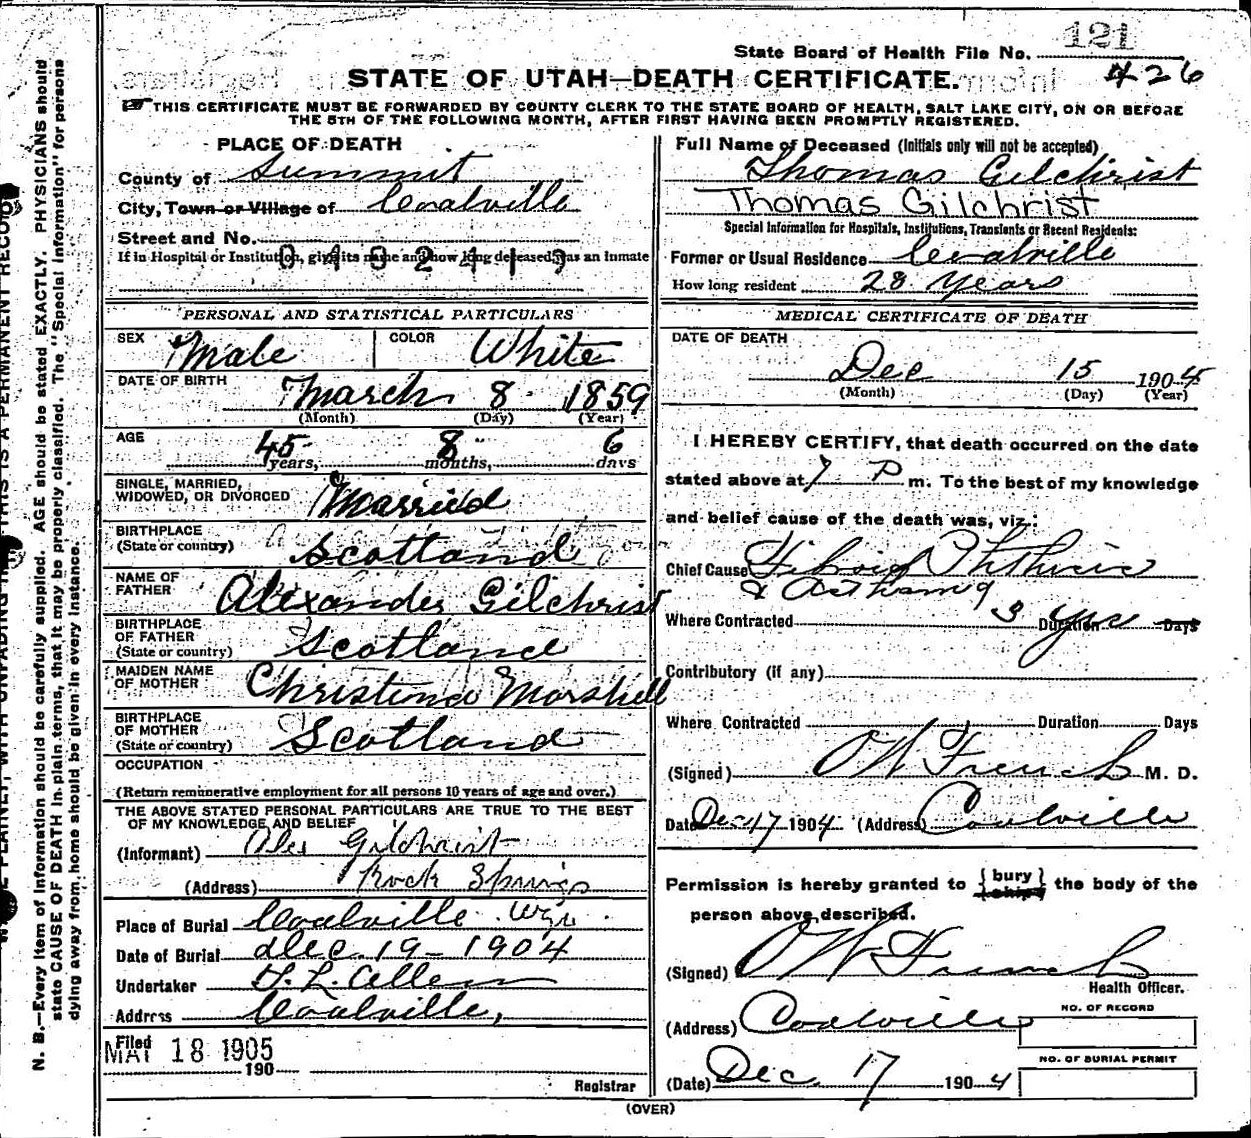 121
State Board of Health File No.
426
STATE OF UTAH—DEATH CERTIFICATE.
THIS CERTIFICATE MUST BE FORWARDED BY COUNTY CLERK TO THE STATE BOARD OF HEALTH, SALT LAKE CITY, ON OR BEFORE
THE 5TH OF THE FOLLOWING MONTH, AFTER FIRST HAVING BEEN PROMPTLY REGISTERED.
PLACE OF DEATH
County of Summit
City, Town or Village of Coalville
Street and No.
If in Hospital or Institution, give its name and how long deceased was an Inmate
PERSONAL AND STATISTICAL PARTICULARS
SEX Male COLOR White
DATE OF BIRTH March 8 1859
(Month) (Day) (Year)
AGE 45 years, 8 months, 6 days
SINGLE, MARRIED,
WIDOWED, OR DIVORCED Married
BIRTHPLACE
(State or country) Scotland
NAME OF
FATHER Alexander Gilchrist
BIRTHPLACE
OF FATHER
(State or country) Scotland
MAIDEN NAME
OF MOTHER Christena Marshell
BIRTHPLACE
OF MOTHER
(State or country) Scotland
OCCUPATION
(Return remunerative employment for all persons 10 years of age and over.)
THE ABOVE STATED PERSONAL PARTICULARS ARE TRUE TO THE BEST
OF MY KNOWLEDGE AND BELIEF
(Informant) Alex Gilchrist
(Address) Rock Springs
Place of Burial Coalville Wyo
Date of Burial Dec 19 - 1904
Undertaker Allen
Address Coalville,
Filed
MAY 18 1905
190
Registrar
Full Name of Deceased (Initials only will not be accepted)
Thomas Gilchrist
Thomas Gilchrist
Special Information for Hospitals, Institutions, Transients or Recent Residents:
Former or Usual Residence Coalville
How long resident 28 years
MEDICAL CERTIFICATE OF DEATH
DATE OF DEATH
Dec 15 1904
(Month) (Day) (Year)
I HEREBY CERTIFY, that death occurred on the date
stated above at 7 P m. To the best of my knowledge
and belief cause of the death was, viz.:
Chief Cause Fibroid Phthisis
& Asthma
Where Contracted 3 Duration Yrs Days
Contributory (if any)
Where Contracted Duration Days
(Signed) O W French M. D.
Date Dec 17 1904 (Address) Coalville
Permission is hereby granted to {bury ship} the body of the
person above described.
(Signed) O W French
Health Officer.
(Address) Coalville
NO. OF RECORD
NO. OF BURIAL PERMIT
(Date) Dec 17 1904
(OVER)
N. B.—Every item of information should be carefully supplied. AGE should be stated EXACTLY. PHYSICIANS should
state CAUSE OF DEATH in plain terms, that it may be properly classified. The "Special Information" for persons
dying away from home should be given in every instance.